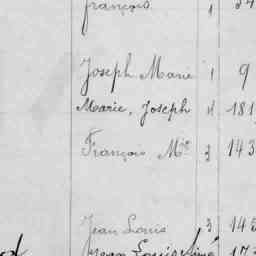 françois 1
Joseph Marie 1 9
Marie, Joseph 4 181
François Mie 3 143
Jean Louis 3 145
Jean Louis